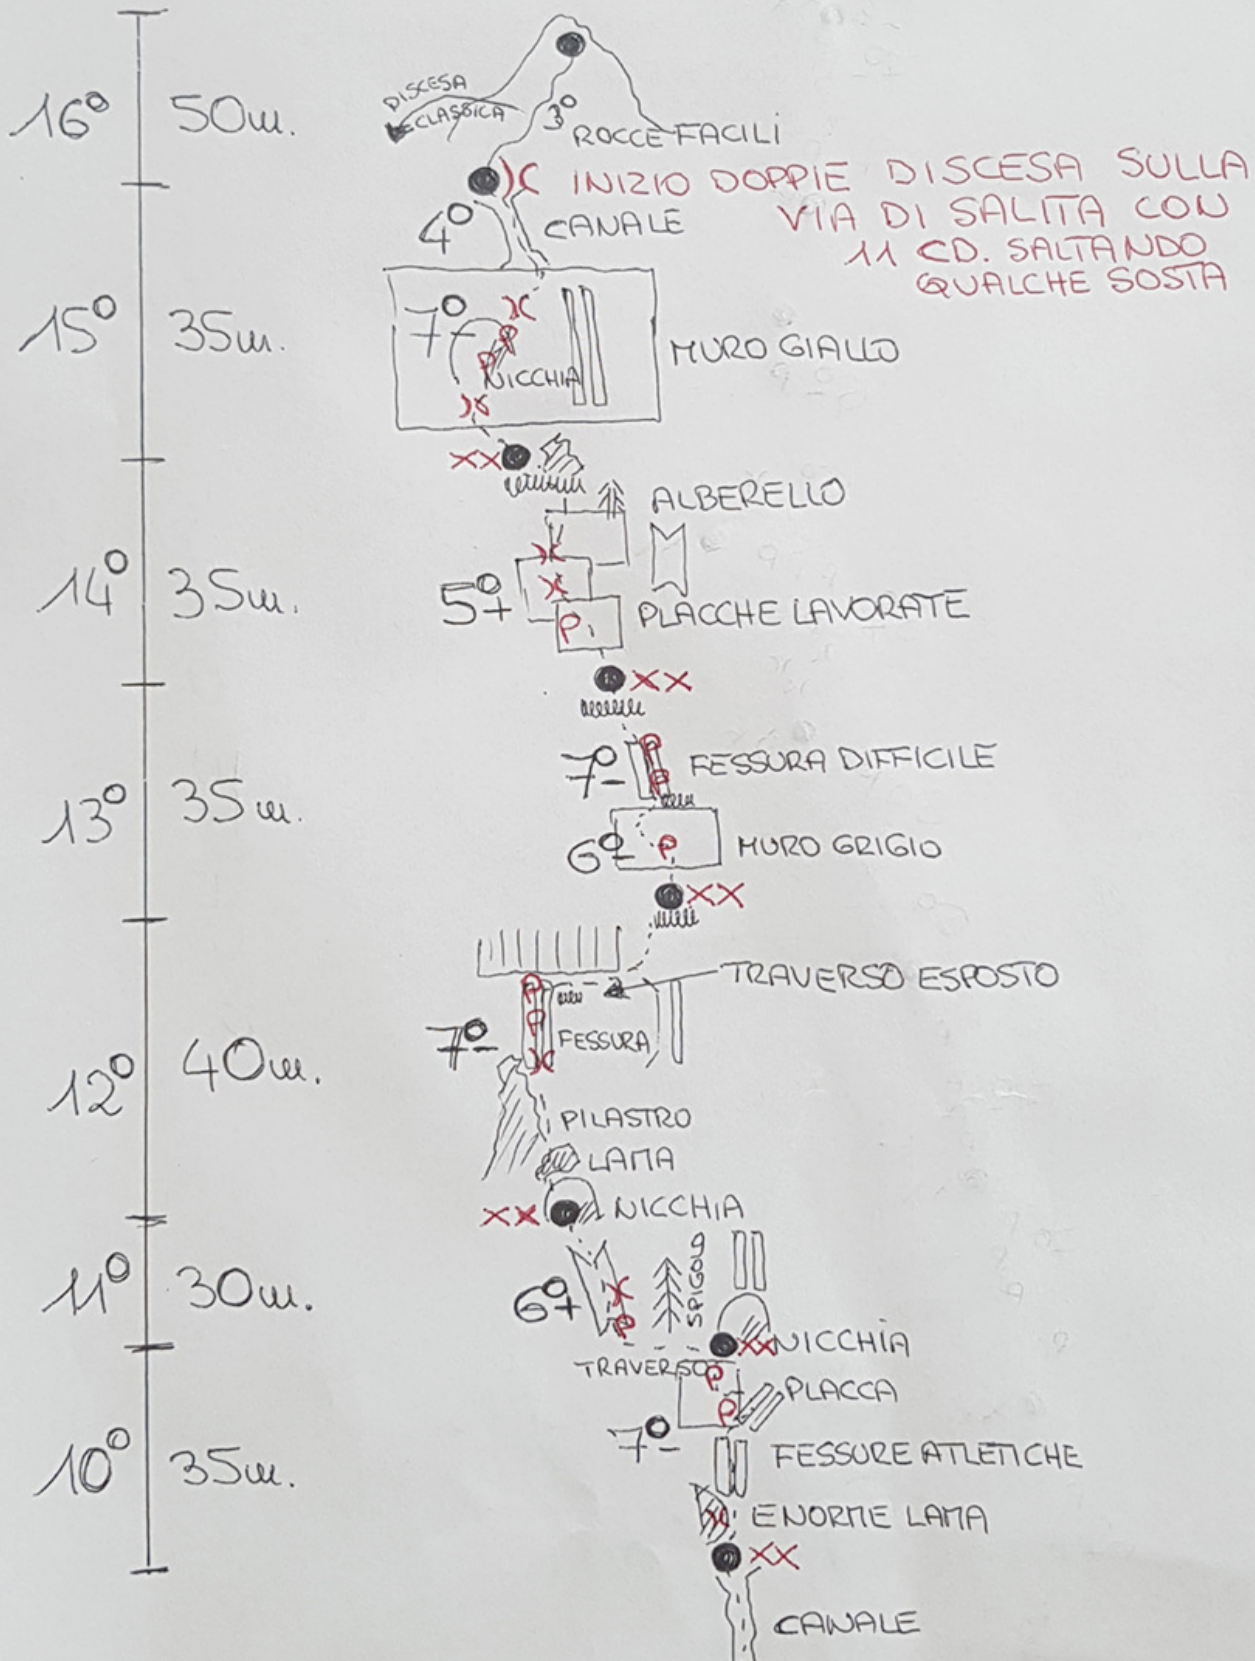 DISCESA
CLASSICA
16° 50m.
3°
ROCCE FACILI
INIZIO DOPPIE DISCESA SULLA
VIA DI SALITA CON
11 CD. SALTANDO
QUALCHE SOSTA
4° CANALE
15° 35m.
7°-
P
P
NICCHIA
MURO GIALLO
XX
ALBERELLO
14° 35m.
5°+
P
PLACCHE LAVORATE
XX
13° 35m.
7°-
P
P
FESSURA DIFFICILE
6°-
P
MURO GRIGIO
XX
TRAVERSO ESPOSTO
12° 40m.
7°-
P
P
FESSURA
PILASTRO
LAMA
XX NICCHIA
11° 30m.
6°+
P
SPIGOLO
XX NICCHIA
TRAVERSO
P
P
PLACCA
10° 35m.
7°-
FESSURE ATLETICHE
ENORME LAMA
XX
CANALE